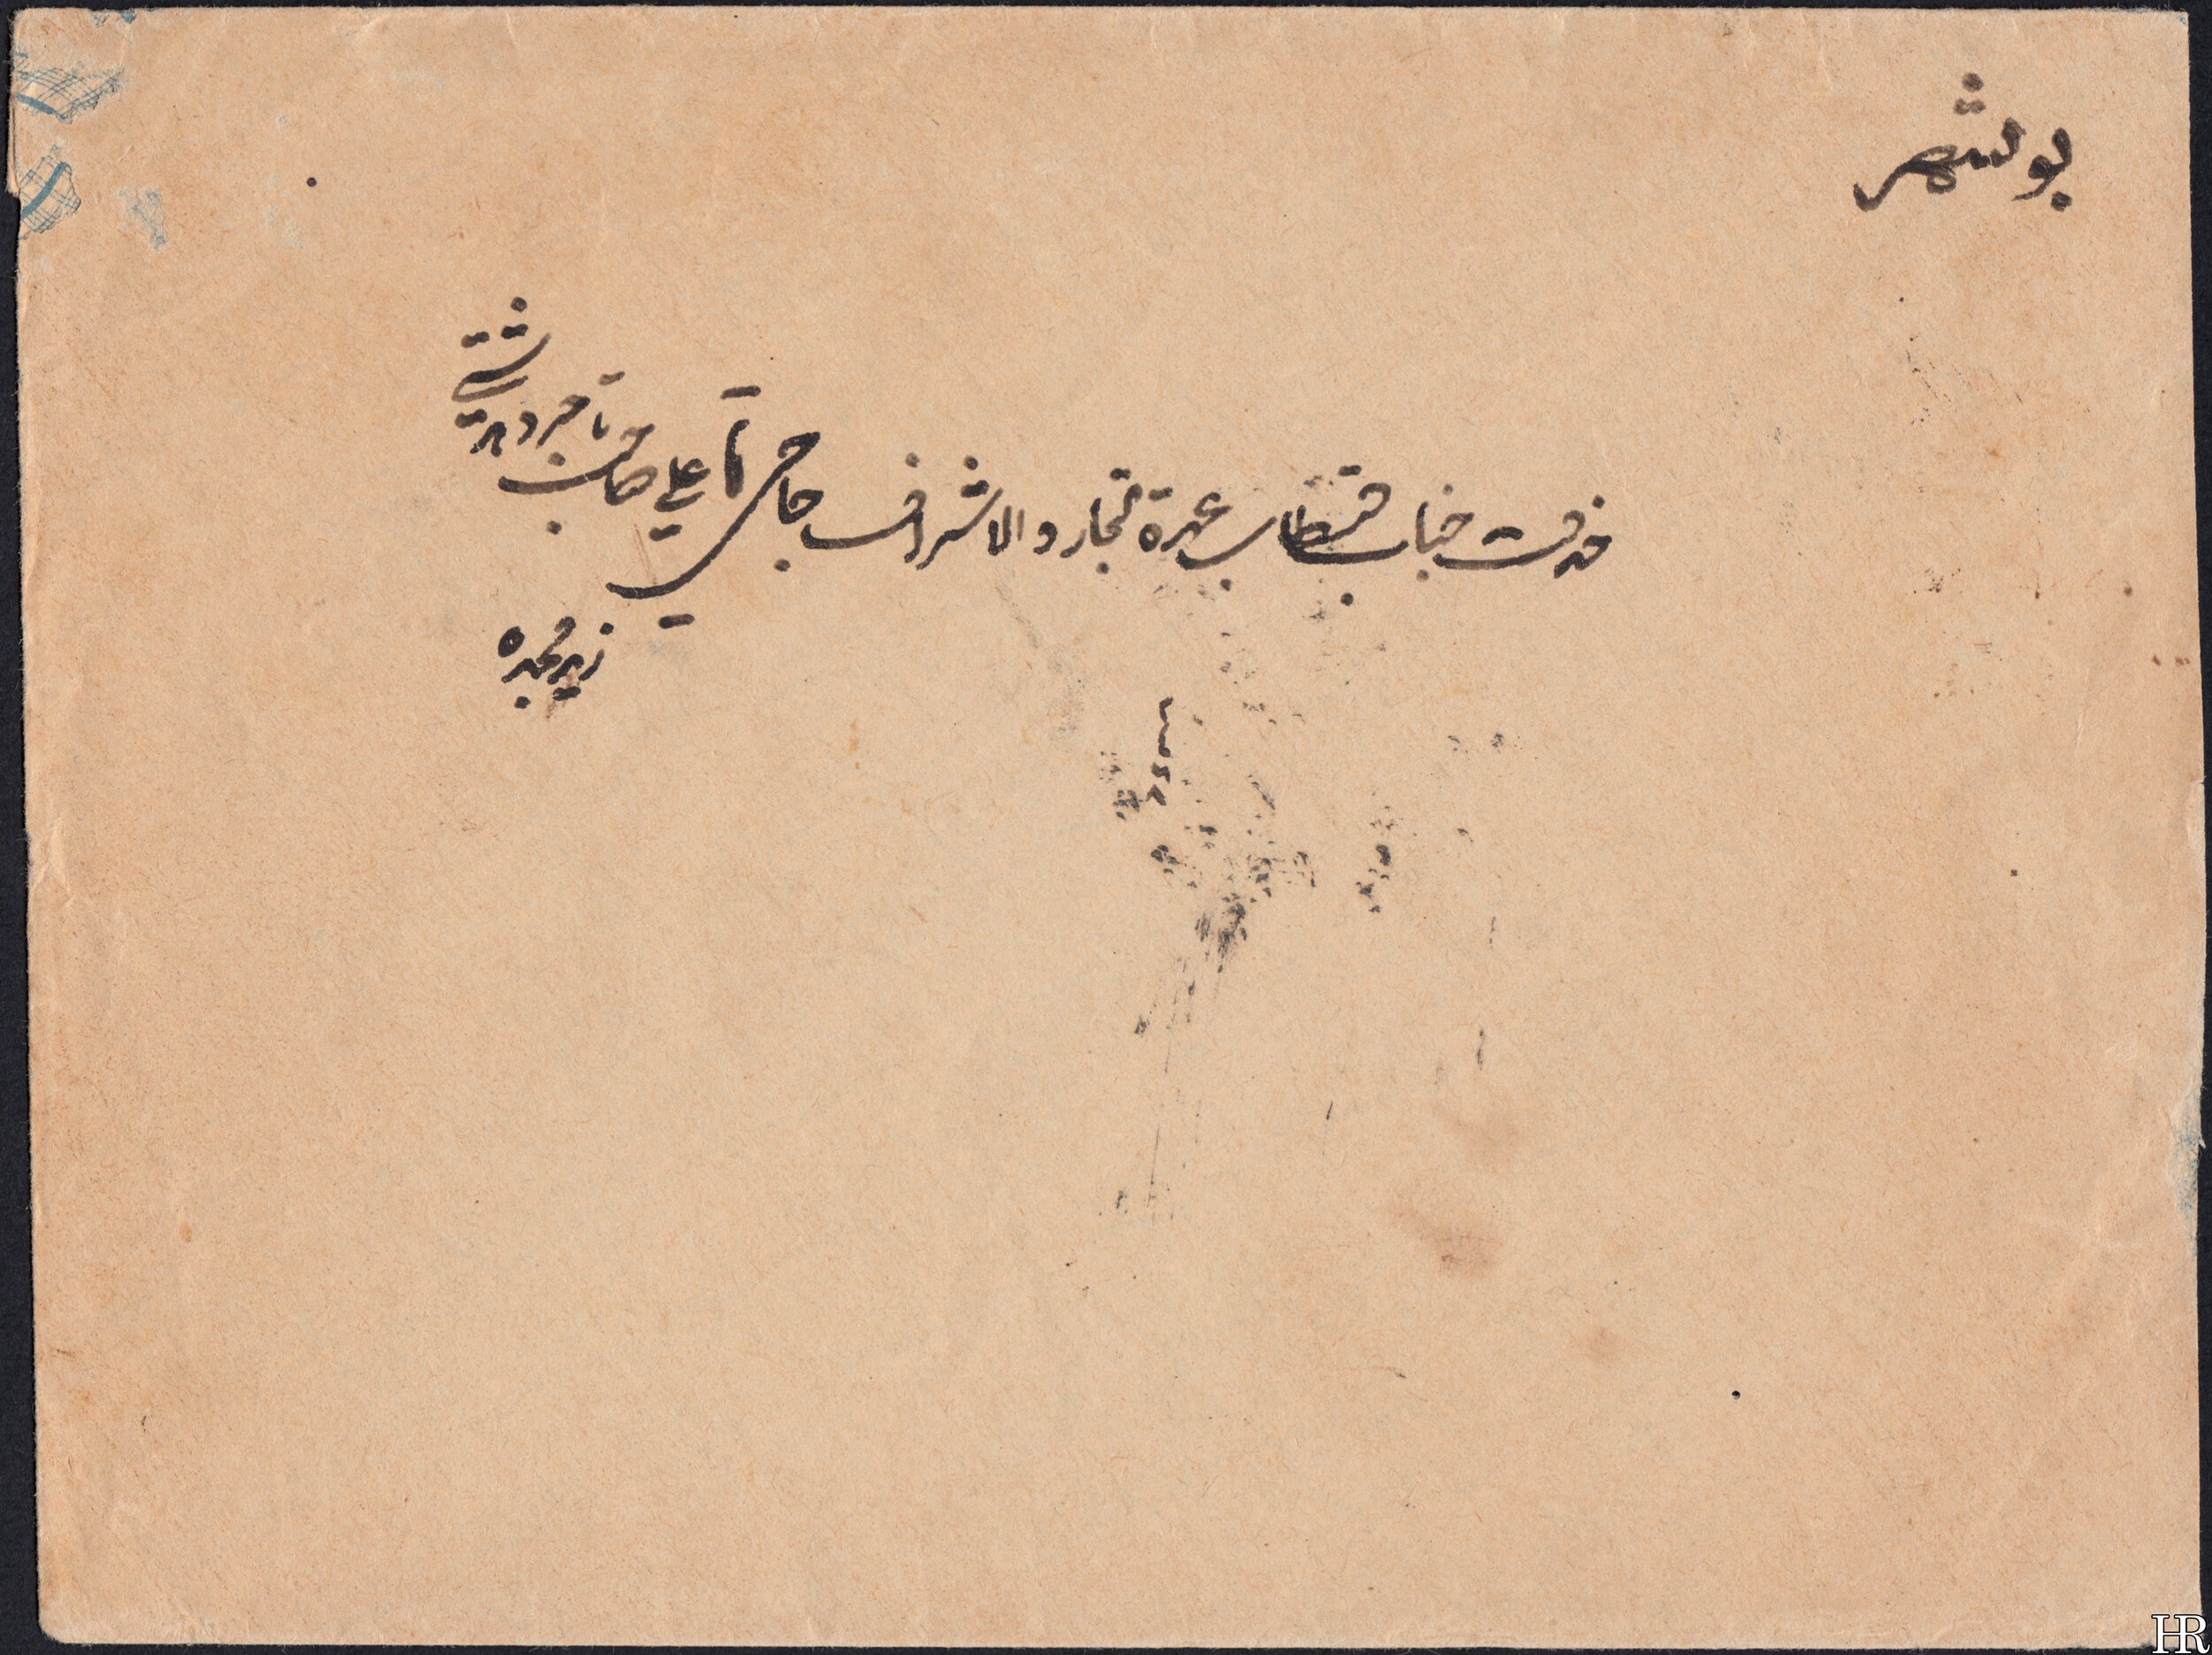 بوشهر
خدمت جناب مستطاب عمدة التجار و الاشراف حاجی علی صاحب تاجر دشتی
زید مجده
HR